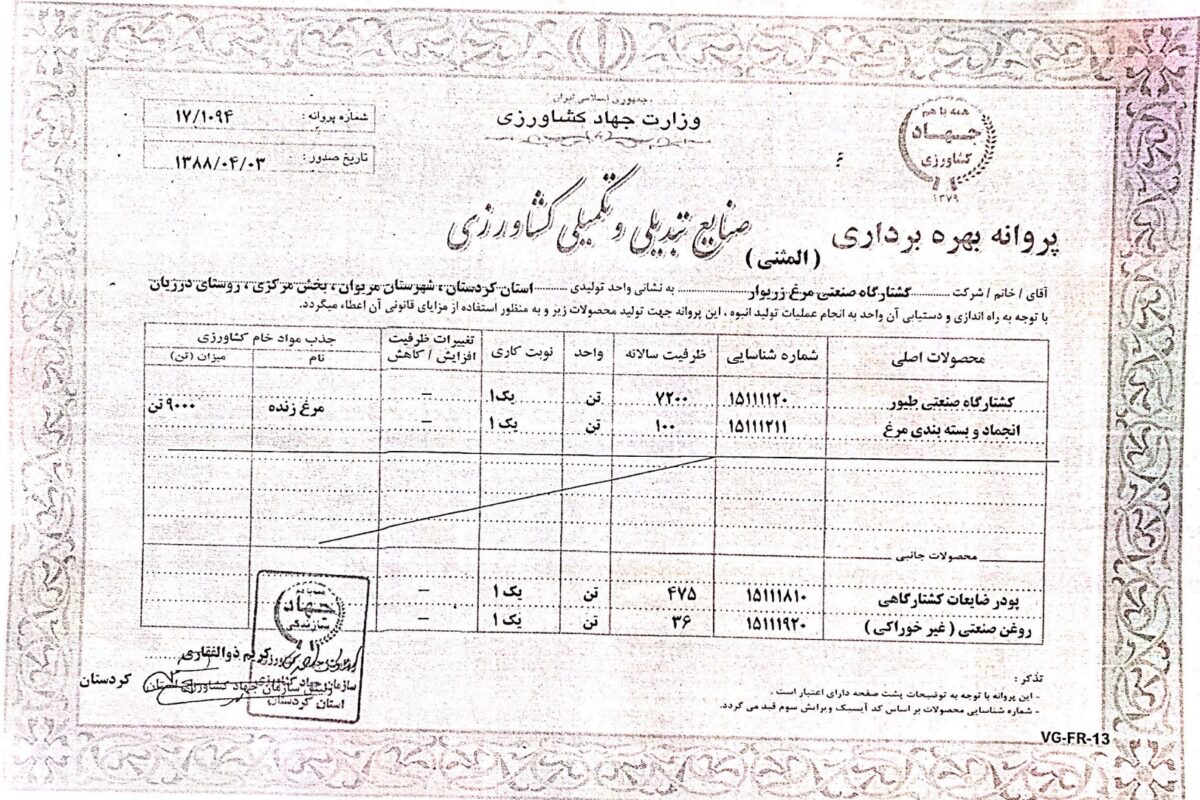 جمهوری اسلامی ایران
وزارت جهاد کشاورزی
همه با هم
جهاد
کشاورزی
۱۳۷۹
شماره پروانه : ۱۷/۱۰۹۴
تاریخ صدور : ۱۳۸۸/۰۴/۰۳
پروانه بهره برداری صنایع تبدیلی و تکمیلی کشاورزی
( المثنی )
آقای / خانم / شرکت ........ کشتارگاه صنعتی مرغ زریوار ........ به نشانی واحد تولیدی ........ استان کردستان ، شهرستان مریوان ، بخش مرکزی ، روستای درزیان
با توجه به راه اندازی و دستیابی آن واحد به انجام عملیات تولید انبوه ، این پروانه جهت تولید محصولات زیر و به منظور استفاده از مزایای قانونی آن اعطاء میگردد.
محصولات اصلی شماره شناسایی ظرفیت سالانه واحد نوبت کاری تغییرات ظرفیت افزایش / کاهش جذب مواد خام کشاورزی
نام میزان (تن)
کشتارگاه صنعتی طیور ۱۵۱۱۱۱۲۰ ۷۲۰۰ تن یک ۱ – مرغ زنده ۹۰۰۰ تن
انجماد و بسته بندی مرغ ۱۵۱۱۱۲۱۱ ۱۰۰ تن یک ۱ –
محصولات جانبی
پودر ضایعات کشتارگاهی ۱۵۱۱۱۸۱۰ ۴۷۵ تن یک ۱ –
روغن صنعتی ( غیر خوراکی ) ۱۵۱۱۱۹۲۰ ۳۶ تن یک ۱ –
جهاد
سازندگی
کریم ذوالفقاری
رئیس سازمان جهاد کشاورزی استان کردستان
سازمان جهاد کشاورزی
استان کردستان
تذکر :
- این پروانه با توجه به توضیحات پشت صفحه دارای اعتبار است .
- شماره شناسایی محصولات بر اساس کد آیسیک ویرایش سوم قید می گردد.
VG-FR-13